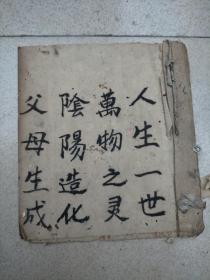 人生一世
萬物之灵
陰陽造化
父母生成